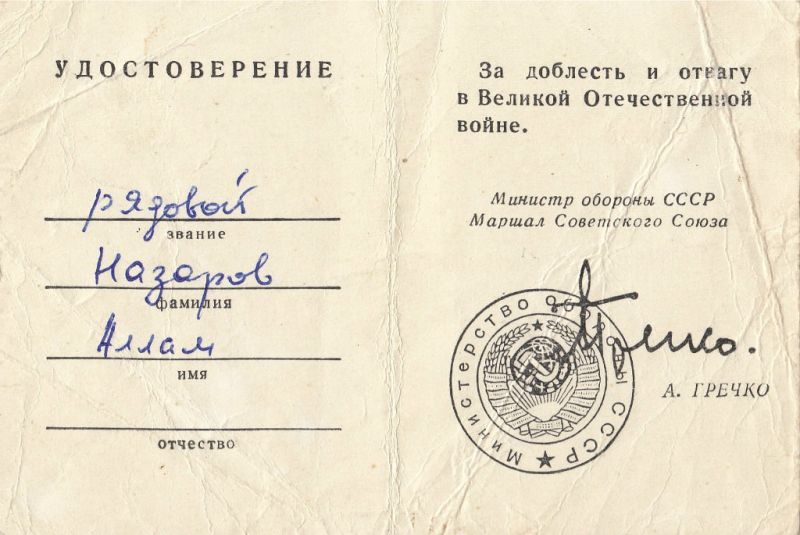 УДОСТОВЕРЕНИЕ
рядовой
звание
Назаров
фамилия
Аллам
имя
отчество
За доблесть и отвагу
в Великой Отечественной
войне.
Министр обороны СССР
Маршал Советского Союза
Министерство Обороны СССР
Гречко.
А. ГРЕЧКО